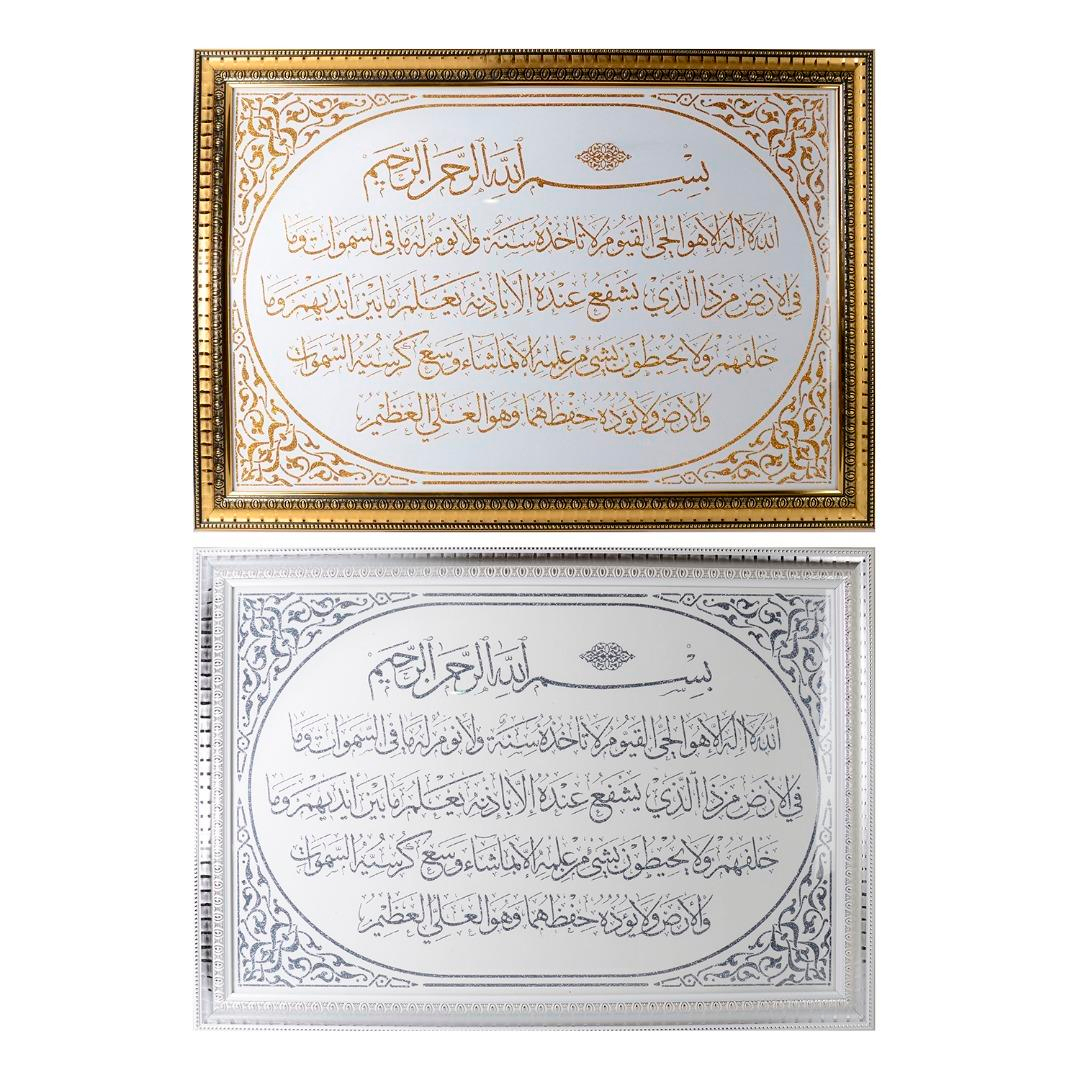 بسم الله الرحمن الرحيم
الله لا اله الا هو الحي القيوم لا تاخذه سنة ولا نوم له ما في السموات وما
في الارض من ذا الذي يشفع عنده الا باذنه يعلم ما بين ايديهم وما
خلفهم ولا يحيطون بشيء من علمه الا بما شاء وسع كرسيه السموات
والارض ولا يؤده حفظهما وهو العلي العظيم
بسم الله الرحمن الرحيم
الله لا اله الا هو الحي القيوم لا تاخذه سنة ولا نوم له ما في السموات وما
في الارض من ذا الذي يشفع عنده الا باذنه يعلم ما بين ايديهم وما
خلفهم ولا يحيطون بشيء من علمه الا بما شاء وسع كرسيه السموات
والارض ولا يؤده حفظهما وهو العلي العظيم